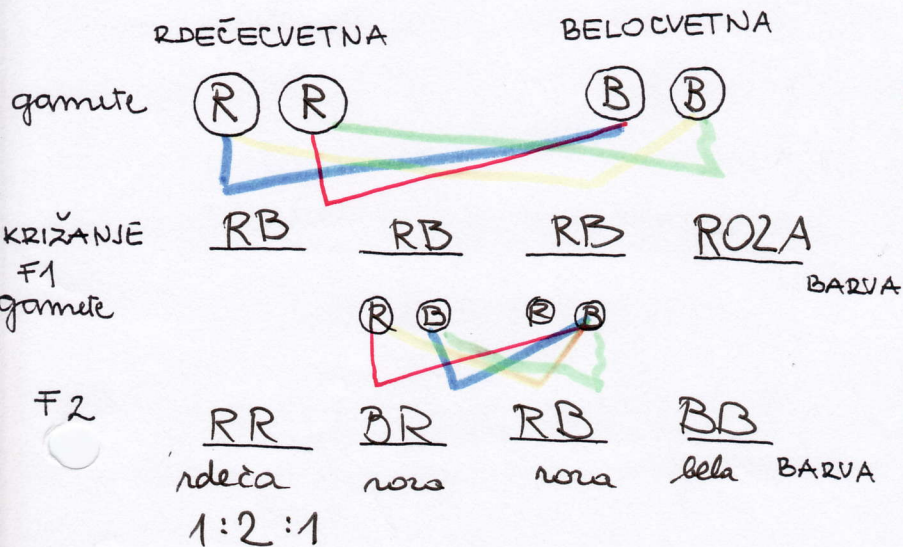 RDEČECVETNA BELOCVETNA
gamete R R B B
KRIŽANJE RB RB RB ROZA
F1 BARVA
gamete R B R B
F2 RR BR RB BB
rdeča roza roza bela BARVA
1:2:1